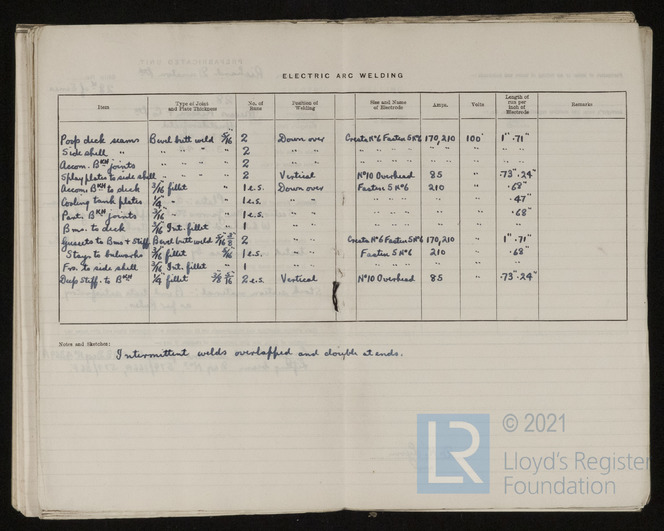 ELECTRIC ARC WELDING
Item Type of Joint and Plate Thickness No. of Runs Position of Welding Size and Name of Electrode Amps. Volts Length of run per Inch of Electrode Remarks
Poop deck seams Bevel butt weld 5/16" 2 Down over Cresta No 6 Fastex 5 No 6 170, 210 100 1" .71"
Side shell " " 2 " " " " " " "
Accom. BKH joints " " 2 " " " " " " "
Splay plates to side shell " " 2 Vertical No 10 Overhead 85 " .73" .24"
Accom. BKH to deck 3/16 fillet " 1 e.s. Down over Fastex 5 No 6 210 " .68"
Cooling tank plates 1/4 " " 1 e.s. " " " " " " .47"
Part. BKH joints 3/16 " " 1 e.s. " " " " " " .68"
Bms. to deck 3/16 Int. fillet " 1 " " " " " " "
Gussets to Bms & Stiff Bevel butt weld 5/16" 3/8" 2 " " Cresta No 6 Fastex 5 No 6 170, 210 " 1" .71"
Stays to bulwarks 3/16 fillet 5/16" 1 e.s. " " Fastex 5 No 6 210 " .68"
Frs. to side shell 3/16 Int. fillet " 1 " " " " " " "
Deep Stiff. to BKH 1/4 fillet 3/8" 5/16" 2 e.s. Vertical No 10 Overhead 85 " .73" .24"
Notes and Sketches:
Intermittent welds overlapped and double at ends.
LR
© 2021
Lloyd's Register
Foundation